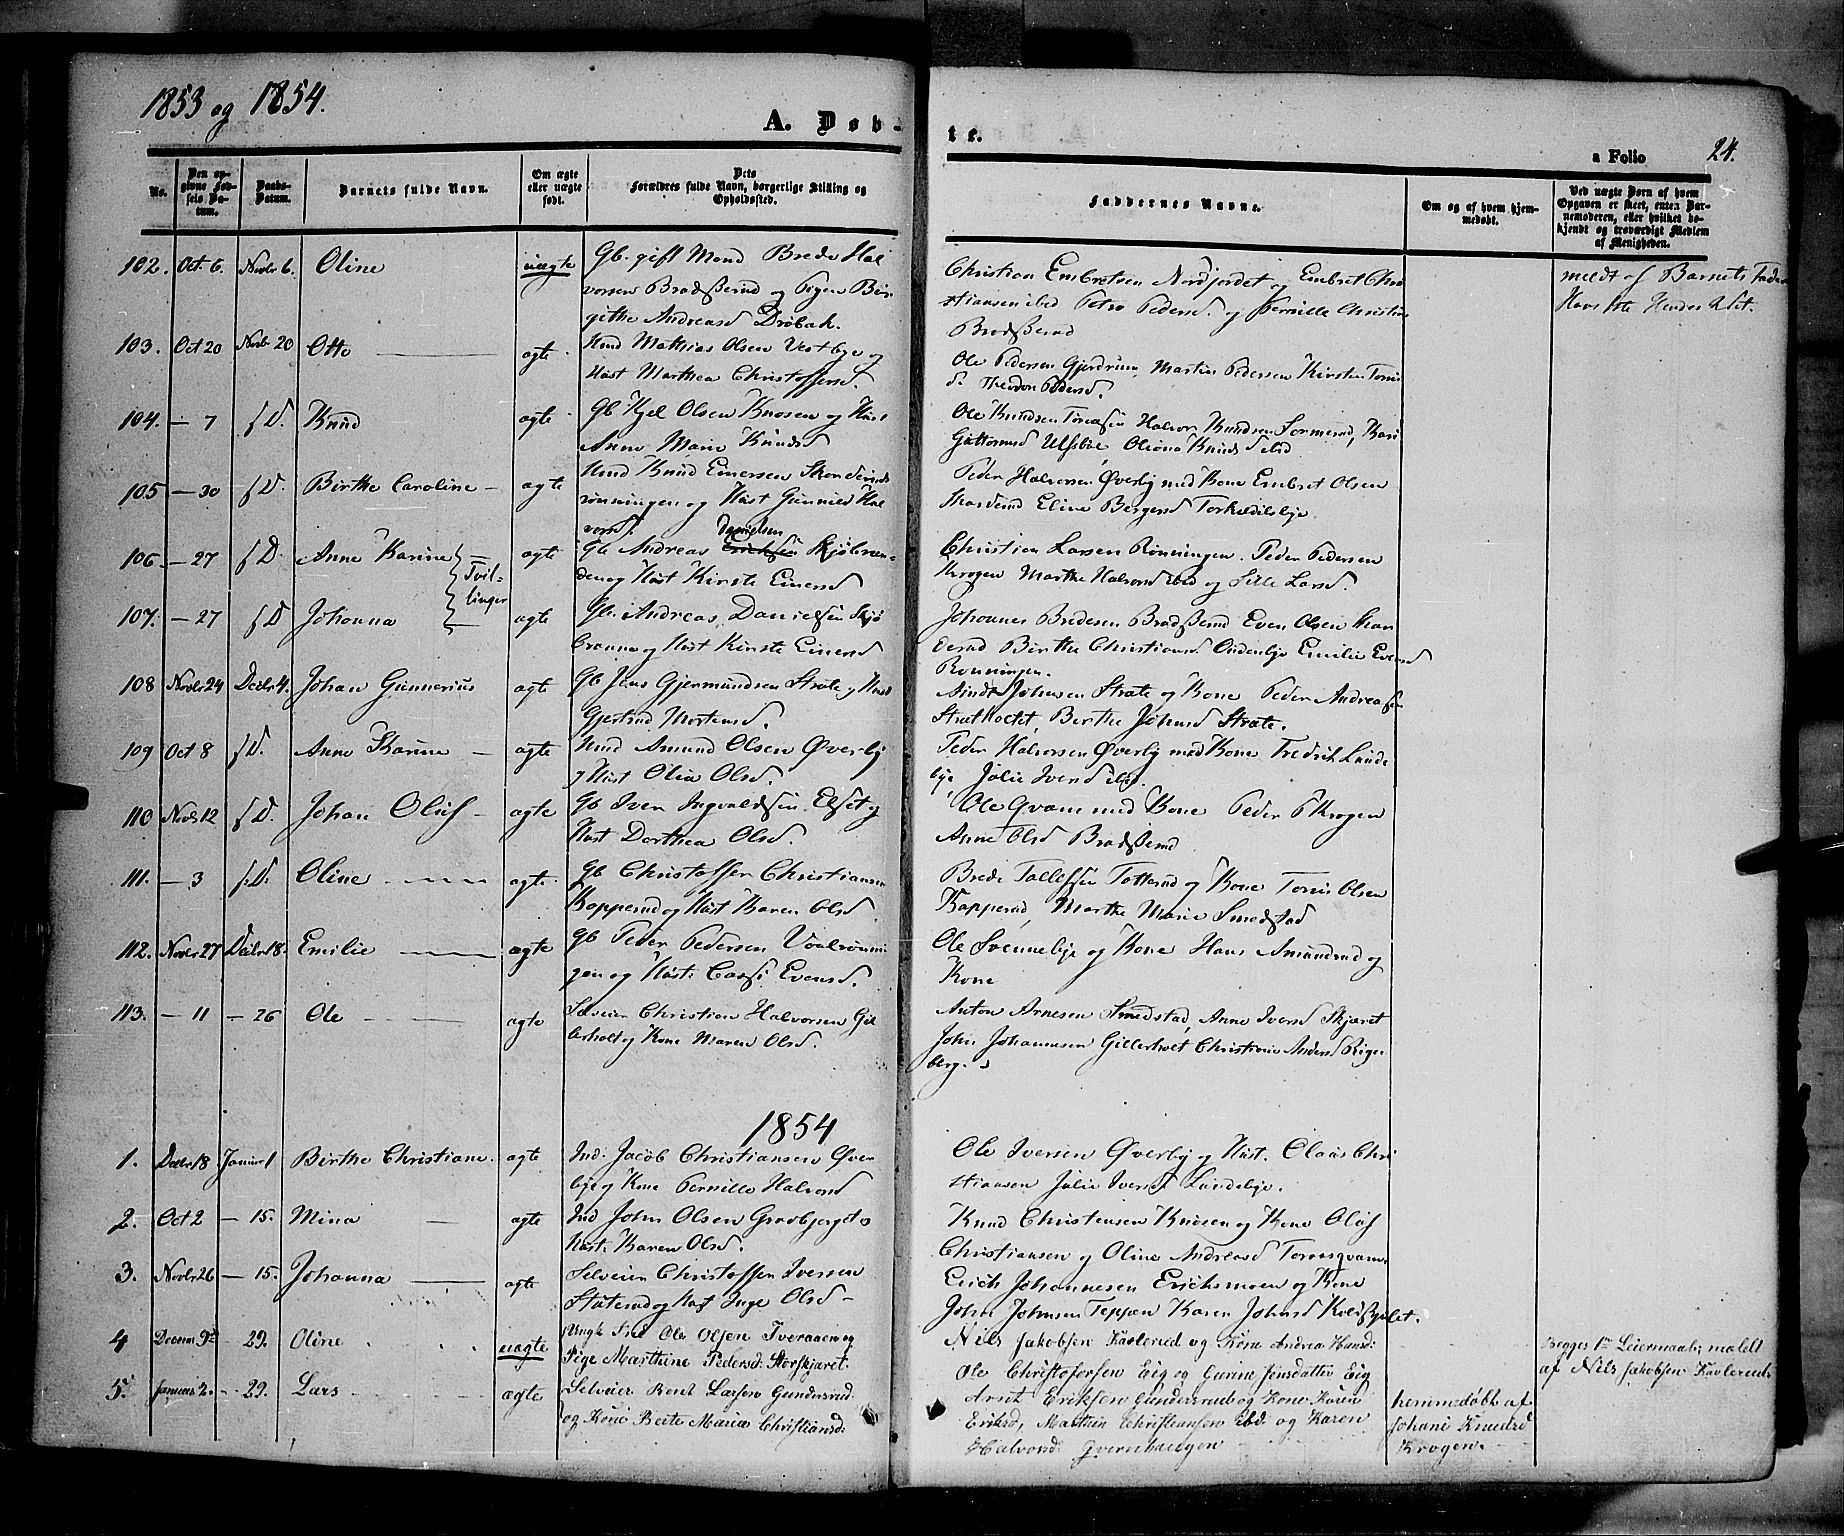 1853 og 1854.
A. Døb-
te.
a Folio 24.
No.
Den opgivne Fødsels Datum.
Daabs-Datum.
Barnets fulde Navn.
Om ægte eller uægte født.
Dets Forældres fulde Navn, borgerlige Stilling og Opholdssted.
Faddernes Navne.
Om og af hvem hjemmedøbt.
Ved uægte Børn af hvem Opgaven er skeet, enten Barnemoderen, eller hvilket bekjendt og troværdigt Medlem af Menigheden.
102. Oct. 6. Novbr 6. Oline uægte Gb. gift Mand Brede Hal
vorsen Bradsserud og Pigen Bir
githe Andreasd Drøbak.
Christian Embretsen Nordjordet og Embret Chri
stiansen ibd Petra Pedersd. og Pernille Christia
Bradsserud
meldt af Barnets Fader
Hans 1te Hendes 2det.
103. Oct 20 Novbr 20 Otto agte Mathias Olsen Vestbye og
Hust Marthea Christoffersd.
Ole Pedersen Gjerdrum, Martin Pedersen Kirsten Tonis
d. Pedersd.
104. — 7 s D. Knud agte Gb Kjel Olsen Knosen og Hust
Anne Marie Knudsd
Ole Knudsen Halvor Knudsen Kari
Guttormsd Oliana Knudsd ibd
105 — 30 s D. Birthe Caroline — agte Knud Einersen
rønningen og Hust Gunnild Hal
vorsd.
Peder Halvorsen Øverby med Kone Embret Olsen
Eline Bergersd Torkildsbye.
106. — 27 s D. Anne Karine Tvil-
linger agte Gb Andreas Danielsen Skjøbran-
den og Hust Kirste Einersd
Christian Larsen Rønningen. Peder Pedersen
Krogen Marthe Halvorsd ibd og Sille Larsd.
107. — 27 s D Johanna agte Gb. Andreas Danielsen Skjø
branna og Hust Kirste Einersd
Johannes Bredesen Bradsserud Even Olsen
Birthe Christiansd Emilie Evensd
Rønningen.
108 Novbr 24 Decbr 4. Johan Gunnerius agte Gb Jens Gjermundsen Strate og Hust
Gjertrud Mortensd.
Johnsen Strate og Kone Peder Andreasen
Berthe Johnsd Strate.
109 Oct 8 s D. Anne Karine — agte Amund Olsen Øverby
og Hust Olia Olsd.
Peder Halvorsen Øverby med Kone Fredrik Lunde
bye, Julie Iversd ibd.
110 Novbr 12 s D. Johan Oluf — agte Gb Iver Ingvaldsen Elset og
Hust Dorthea Olsd.
Ole Qvam med Kone Peder P Krogen
Anne Olsd Bradsserud
111. — 3 s. D. Oline agte. Gb Christoffer Christiansen
Kopperud og Hust Karen Olsd
Brede Tollefsen Totterud og Kone Tonis Olsen
Kopperud, Marthe Marie Smedstad
112. Novbr 27 Decbr 18. Emilie agte Gb Peder Pedersen
gen og Hust. Evensd.
Ole Svennebye og Kone Hans Amundrud og
Kone
113. — 11 — 26 Ole agte Selveier Christian Halvorsen Gil
lerholt og Kone Maren Olsd.
Anton Arnesen Smedstad, Anne Iversd Skjæret
John Johannesen Gillerholt Christiane Andersd Rige
berg.
1854
1. Decbr 18 Januar 1 Birthe Christiane. agte Ind: Jacob Christiansen Øver
bye og Kone Pernille Halvorsd
Ole Iversen Øverby og Hust. Claus Chri
stiansen Julie Iversd Lundebye.
2. Oct 2 — 15. Mina agte Ind John Olsen Gravbjerget og
Hust. Karen Olsd.
Knud Christensen Knosen og Kone Oluf
Christiansen og Oline Andreasd
3. Novbr 26 — 15. Johanna agte Selveier Christoffer Iversen
Staterud og Hust Inge Olsd —
Erich Johannesen Erichsmoen og Kone
Johan Johnsen Teppen Karen Johnsd
4 Decem 9de — 29. Oline uagte Ungk Ole Olsen Tveraaen og
Pige Marthine Pedersd: Storskjæret.
Nils Jakobsen Kavlerud og Kone Andrea Hansd:
Ole Christofersen Eig og Gurine Jensdatter Eig
Begges 1ste Leiermaal; maldt
af Nils Jakobsen Kavlerud.
5. Januar 2. — 29. Lars agte Selveier Bent Larsen Gundersrud
og Kone Berte Maria Christiansd:
Arnt Eriksen Gundersrud og Kone Karen
Eriksd, Martin Christiansen ibd: og Karen
Halvorsd: Qvernhaugen
hjemmedøbt af
Johane Knudsd
Krogen.